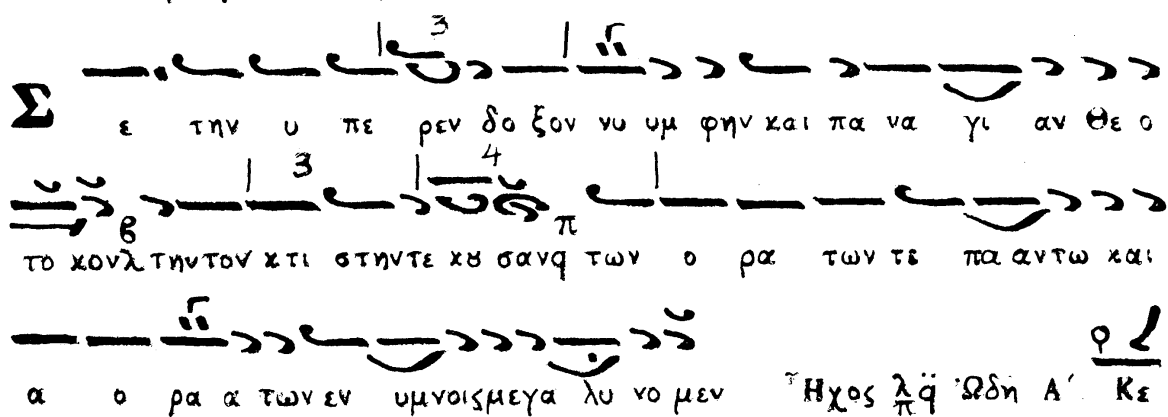 3 π
Σε την υ πε ρεν δο ξον νυ υμ φην και πα να γι αν Θε ο
3 4
το κον λβ την τον κτι στην τε κȣ σαν q π των ο ρα των τε πα αντω και
π
α ο ρα α των εν υμνοις μεγα λυ νο μεν Ἦχος λ π q̈ Ὠδη Α΄ Κε